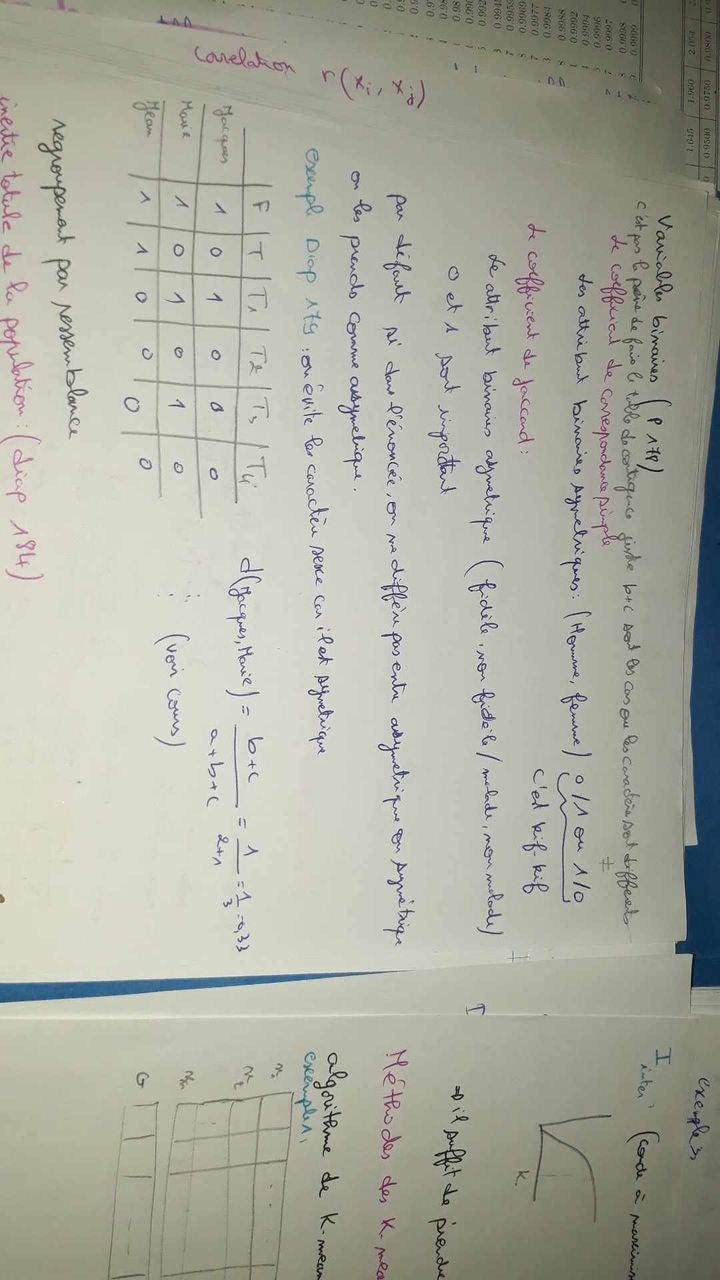 Variables binaires (P 178)
c'est pas la peine de faire le table de contigence juste b+c sont les cas ou les caractère sont differents
≠
Le coefficient de correspondance simple
Les attribut binaires symetriques: (Homme, femme) 0/1 ou 1/0
c'est kif-kif
Le coefficient de Jaccard:
Le attribut binaires asymetrique (fidèle, non fidèle / malade, non malade)
0 et 1 sont important
par défaut si dans l'énoncée, on ne diffère pas entre assymetrique ou symétrique
on les prends comme assymetrique.
exempl Diap 179 : on évite les caractère sexe car il est symetrique
F T T1 T2 T3 T4
Jacques 1 0 1 0 0 0
Marie 1 0 1 0 1 0
Jean 1 1 0 0 0 0
d(Jacques, Marie) = b+c / a+b+c = 1 / 2+1 = 1/3 = 0,33
(voir cours)
regroupement par ressemblance
inertie totale de la population: (diap 184)
Correlation r(xi, xj)
exemple 3
I inter
K
I
⇒ il suffit de prendre
Méthodes des K-mean
algorithme de K-mean
exemple 1,
x1
x2
xn
G
1.645 1.960 2.054
0.9500 0.9750 0.9800